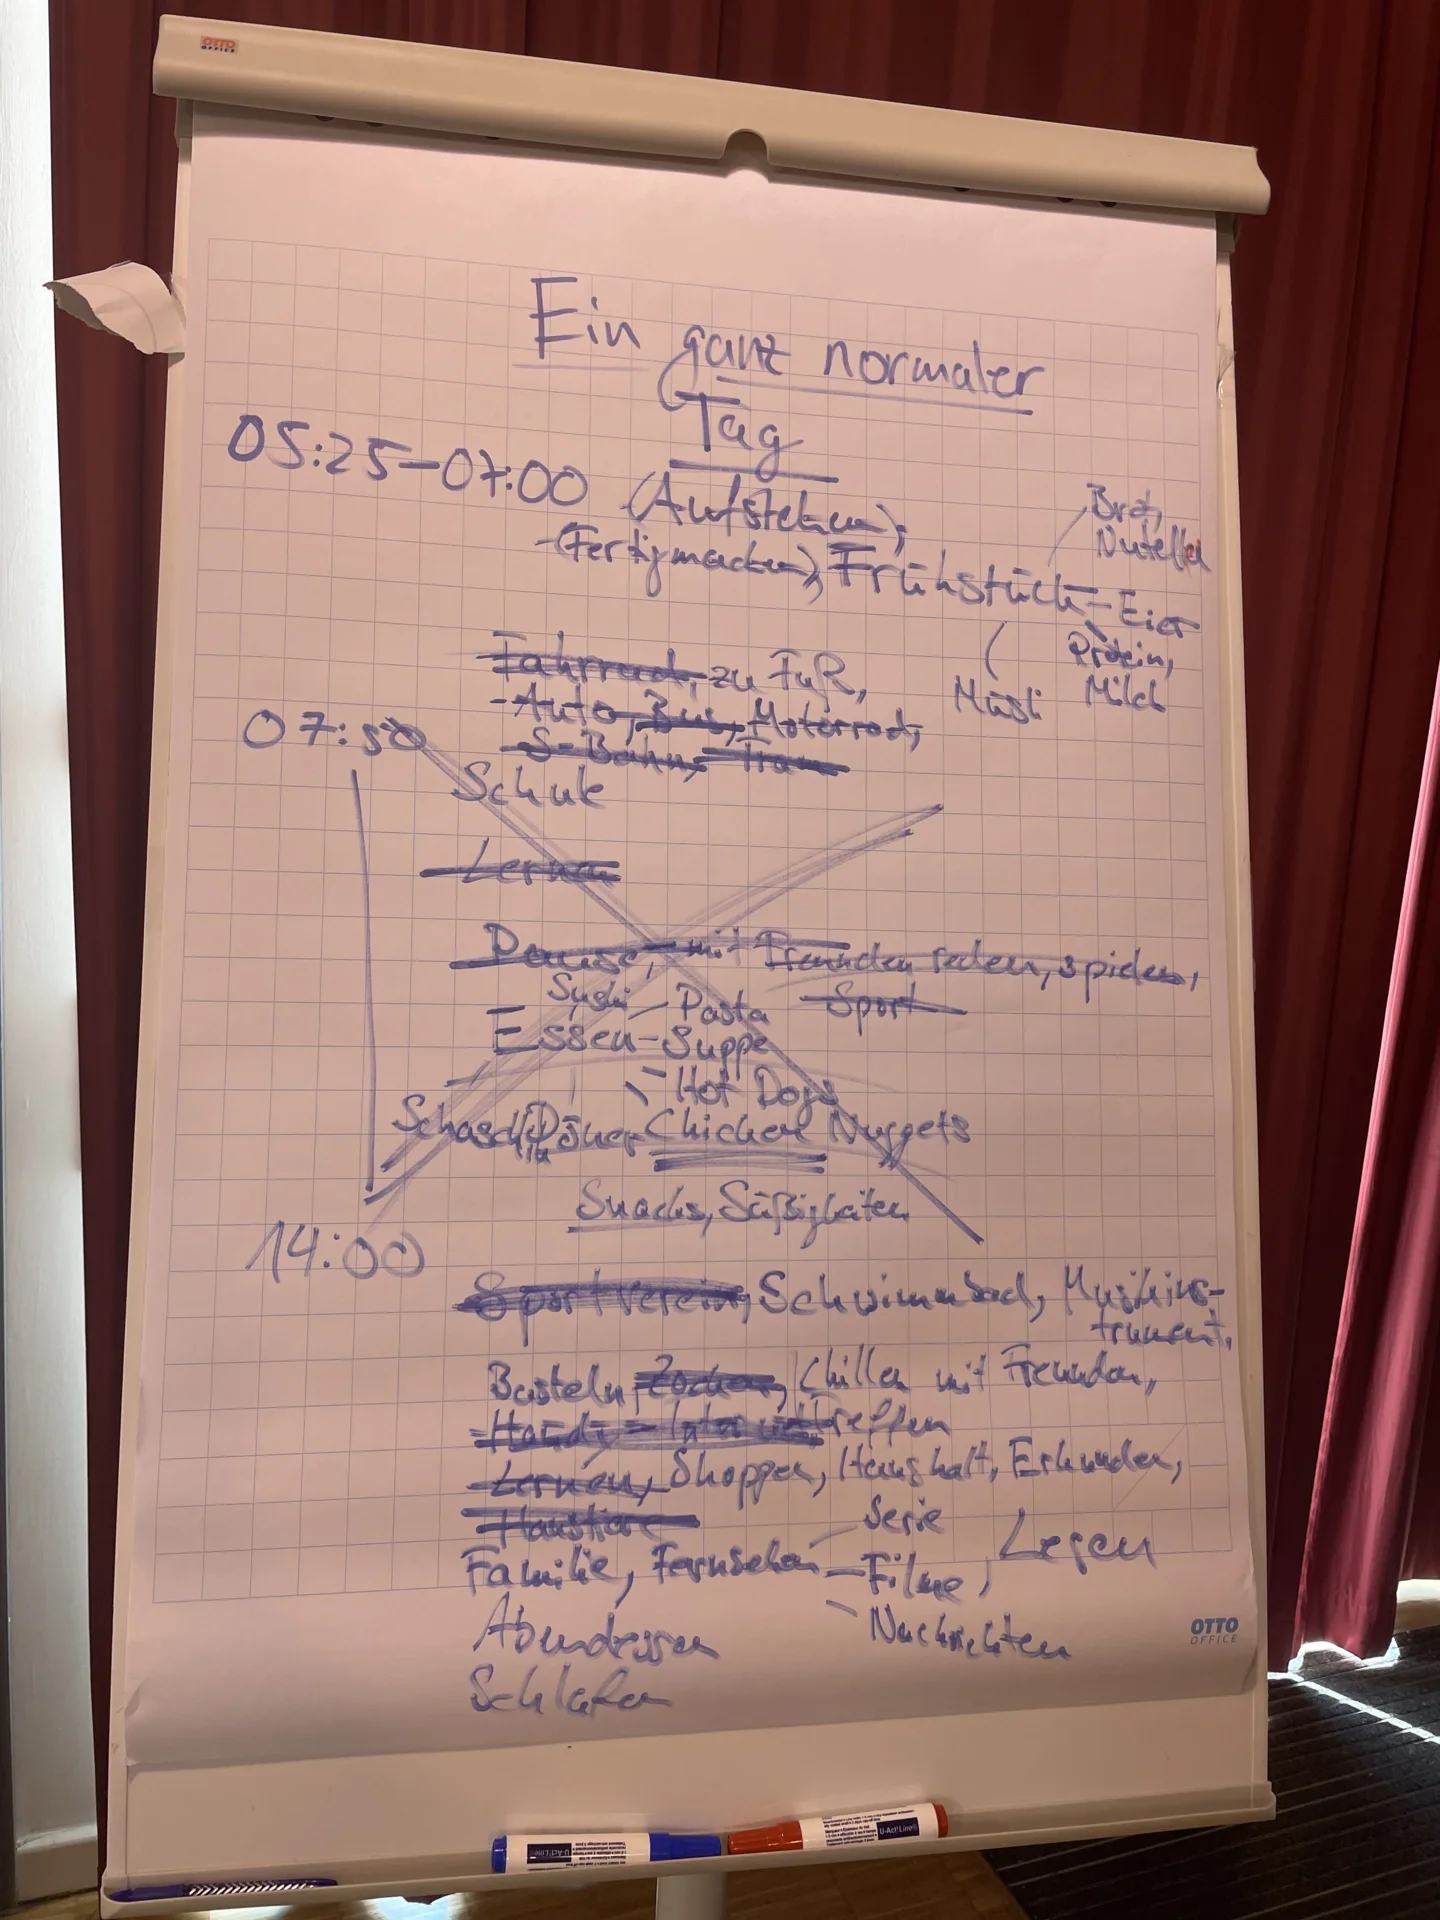 OTTO
OFFICE
Ein ganz normaler
Tag
05:25-07:00 (Aufstehen),
-(Fertigmachen), Frühstück
Brot,
Nutella
-Eier
Protein,
Milch
Müsli
Fahrrad, zu Fuß,
-Auto, Bus, Motorrad,
S-Bahn, Tram
07:50
Schule
Lernen
Pause, mit Freunden reden, spielen,
Sport
Sushi
Pasta
Essen-Suppe
Hot Dogs
Döner Chicken Nuggets
Snacks, Süßigkeiten
14:00
Sportverein, Schwimmbad, Musikins-
trument,
Basteln, Zocken, Chillen mit Freunden,
treffen
Lernen, Shoppen, Haushalt, Erkunden,
Haustiere
Familie, Fernsehen
Serie
-Filme,
Nachrichten
Lesen
Abendessen
Schlafen
OTTO
OFFICE
U-Act!Line®
U-Act!Line®